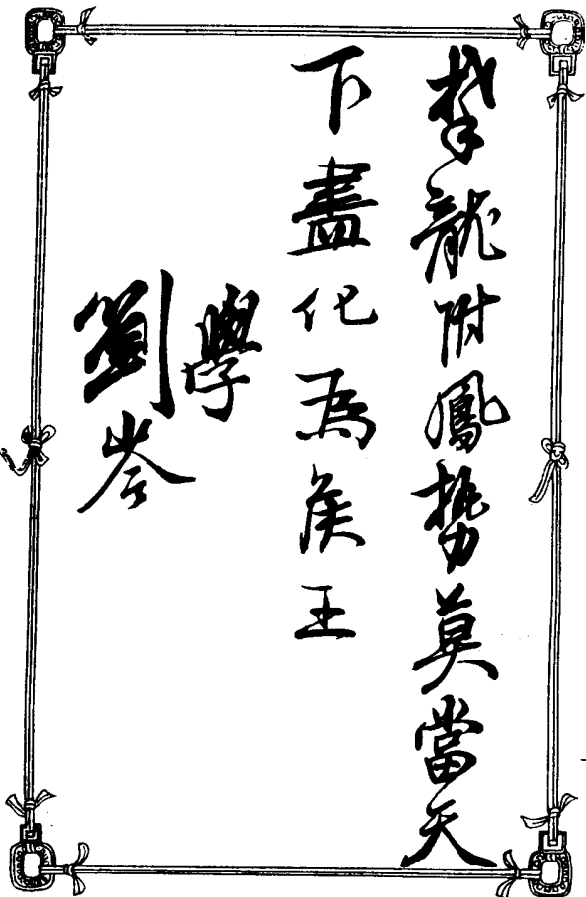 攀龍附鳳勢莫當天
下盡化為侯王
學
劉岑